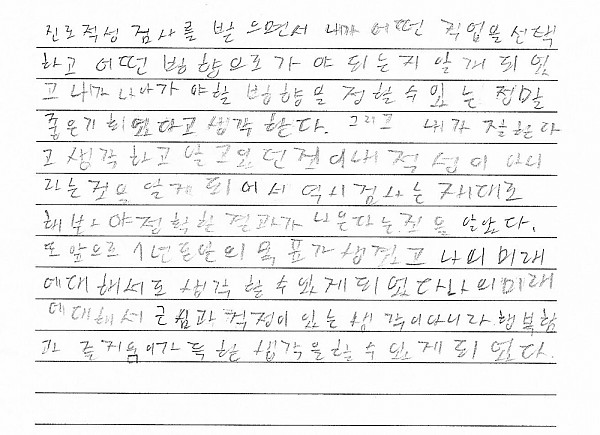 진로적성 검사를 받으면서 내가 어떤 직업을 선택
하고 어떤 방향으로 가야 되는지 알게 되었
고 내가 나아가야할 방향을 정할 수 있는 정말
좋은기회였다고 생각한다. 그리고 내가 잘한다
고 생각하고 알고있던것이 내 적성이 아니
라는것을 알게 되어서 역시 검사는 제대로
해보아야 정확한 결과가 나온다는 것을 알았다.
또 앞으로 1년동안의 목표가 생겼고 나의 미래
에대해서도 생각 할 수 있게 되었다 나의 미래
에 대해서 근심과 걱정이 있는 생각이 아니라 행복함
과 즐거움이 가득한 생각을 할 수 있게 되었다.